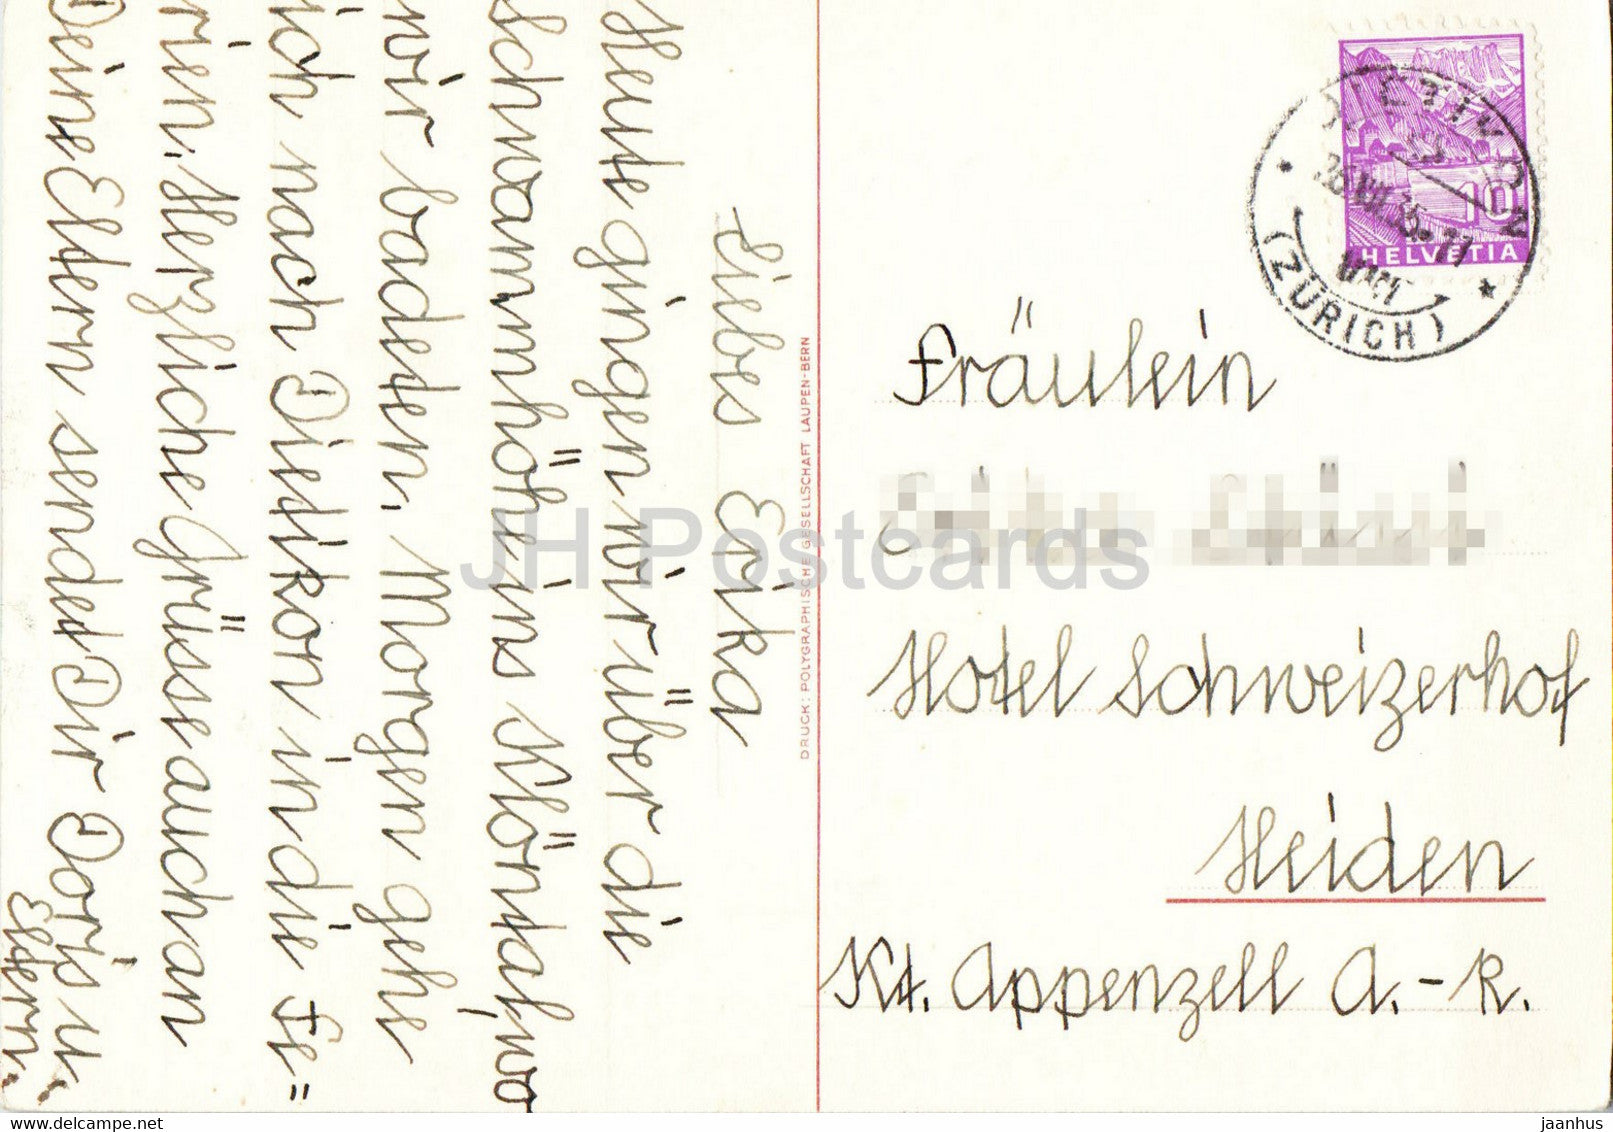 Liebes Erika
Heute gingen wir über die
Schwammhöhe ins Klöntal, wo
wir badeten. Morgen gehe
ich nach Dietikon in die Fe=
rien. Herzliche Grüsse auch an
Deine Eltern sendet Dir Doris u.
Eltern.
DRUCK: POLYGRAPHISCHE GESELLSCHAFT LAUPEN-BERN
10
HELVETIA
(ZÜRICH)
Fräulein
Hotel Schweizerhof
Heiden
Kt. Appenzell A.-R.
JH Postcards
www.delcampe.net
jaanhus